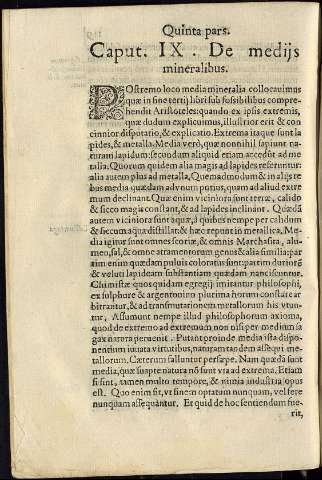 Quinta pars.
Caput. IX. De medijs
mineralibus.
POstremo loco media mineralia collocauimus
quæ in fine tertij libri sub fusibilibus compre
hendit Aristoteles: quando ex ipsis extremis,
quæ dudum explicuimus, illustrior erit & con
cinnior disputatio, & explicatio. Extrema itaque sunt la
pides, & metalla. Media verò, quæ nonnihil sapiunt na
turam lapidum: secundùm aliquid etiam accedũt ad me
talla. Quorum quidem alia magis ad lapides referuntur:
alia autem plus ad metalla. Quemadmodũ & in aligs re
bus media quædam ad vnum potius, quam ad aliud extre
mum declinant. Quæ enim viciniora sunt terræ, calido
& sicco magis constant, & ad lapides inclinant. Quædã
autem viciniora sunt aquę, à quibus nempe per calidum
& siccum aqua distillat: & hæc reponit in metallica. Me
dia igitur sunt omnes scoriæ, & omnis Marchasita, alu-
men, sal, & omne atramentorum genus & alia similia: par
tim enim quædam puluis coloratus sunt: partim duriora
& veluti lapideam substantiam quædam nanciscuntur.
Chimistæ quos quidam egregij imitantur philosophi,
ex sulphure & argento viuo plurima horum constare ar
bitrantur, & ad transmutationem metallorum his vtun
tur. Assumunt nempe illud philosophorum axioma,
quod de extremo ad extremum non nisi per medium sa
gax natura peruenit. Putant proinde media ista dispo-
nentium iuuata virtutibus, naturam tandem assequi me-
tallorum. Cæterum falluntur persæpe. Nam quædã sunt
media, quæ suapte natura nõ sunt via ad extrema. Etiam
si sint, tamen multo tempore, & nimia industria opus
est. Quo enim fit, vt finem optatum nunquam, vel fere
nunquam assequantur. Et quid de hoc sentiendum fue-
rit,